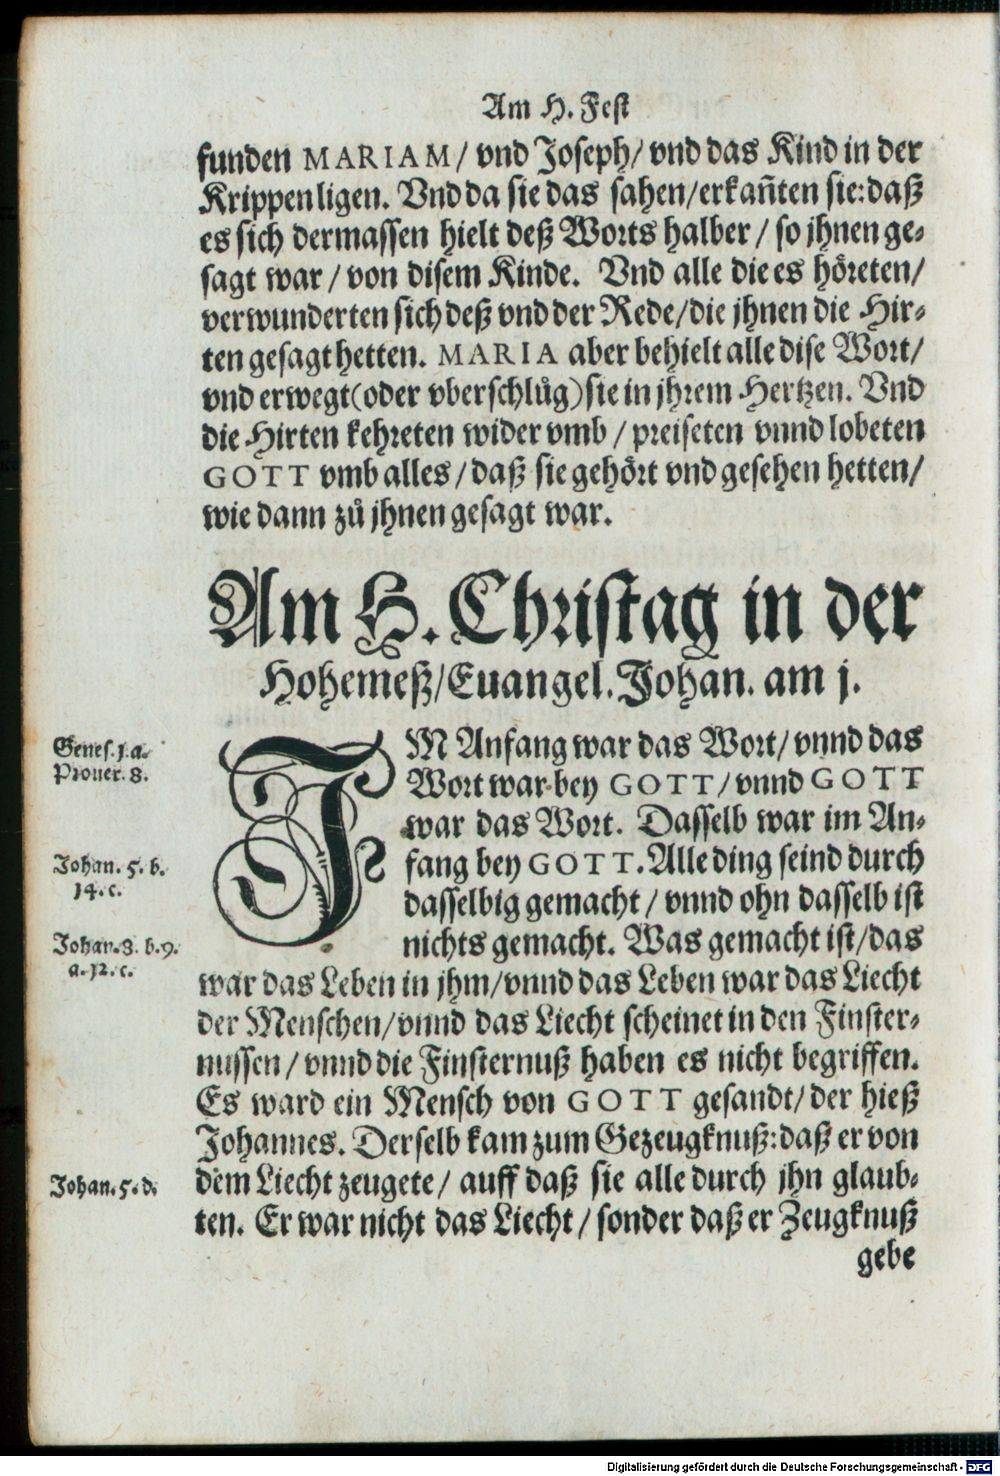 Am H. Fest
funden MARIAM/ vnd Joseph/ vnd das Kind in der
Krippen ligen. Vnd da sie das sahen/ erkañten sie: daß
es sich dermassen hielt deß Worts halber / so jhnen ge-
sagt war / von disem Kinde. Vnd alle die es höreten/
verwunderten sich deß vnd der Rede/ die jhnen die Hir-
ten gesagt hetten. MARIA aber behielt alle dise Wort/
vnd erwegt (oder vberschlůg) sie in jhrem Hertzen. Vnd
die Hirten kehreten wider vmb / preiseten vnnd lobeten
GOTT vmb alles / daß sie gehört vnd gesehen hetten/
wie dann zů jhnen gesagt war.
Am H. Christag in der
Hohemeß/ Euangel. Johan. am j.
Genes. 1. a.
Prouer. 8.
IM Anfang war das Wort/ vnnd das
Wort war bey GOTT/ vnnd GOTT
war das Wort. Dasselb war im An-
fang bey GOTT. Alle ding seind durch
dasselbig gemacht / vnnd ohn dasselb ist
nichts gemacht. Was gemacht ist/ das
Johan. 5. b.
14. c.
Johan. 8. b. 9.
a. 12. c.
war das Leben in jhm/ vnnd das Leben war das Liecht
der Menschen/ vnnd das Liecht scheinet in den Finster-
nussen / vnnd die Finsternuß haben es nicht begriffen.
Es ward ein Mensch von GOTT gesandt/ der hieß
Johannes. Derselb kam zum Gezeugknuß: daß er von
Johan. 5. d.
dem Liecht zeugete/ auff daß sie alle durch jhn glaub-
ten. Er war nicht das Liecht / sonder daß er Zeugknuß
gebe
Digitalisierung gefördert durch die Deutsche Forschungsgemeinschaft - DFG